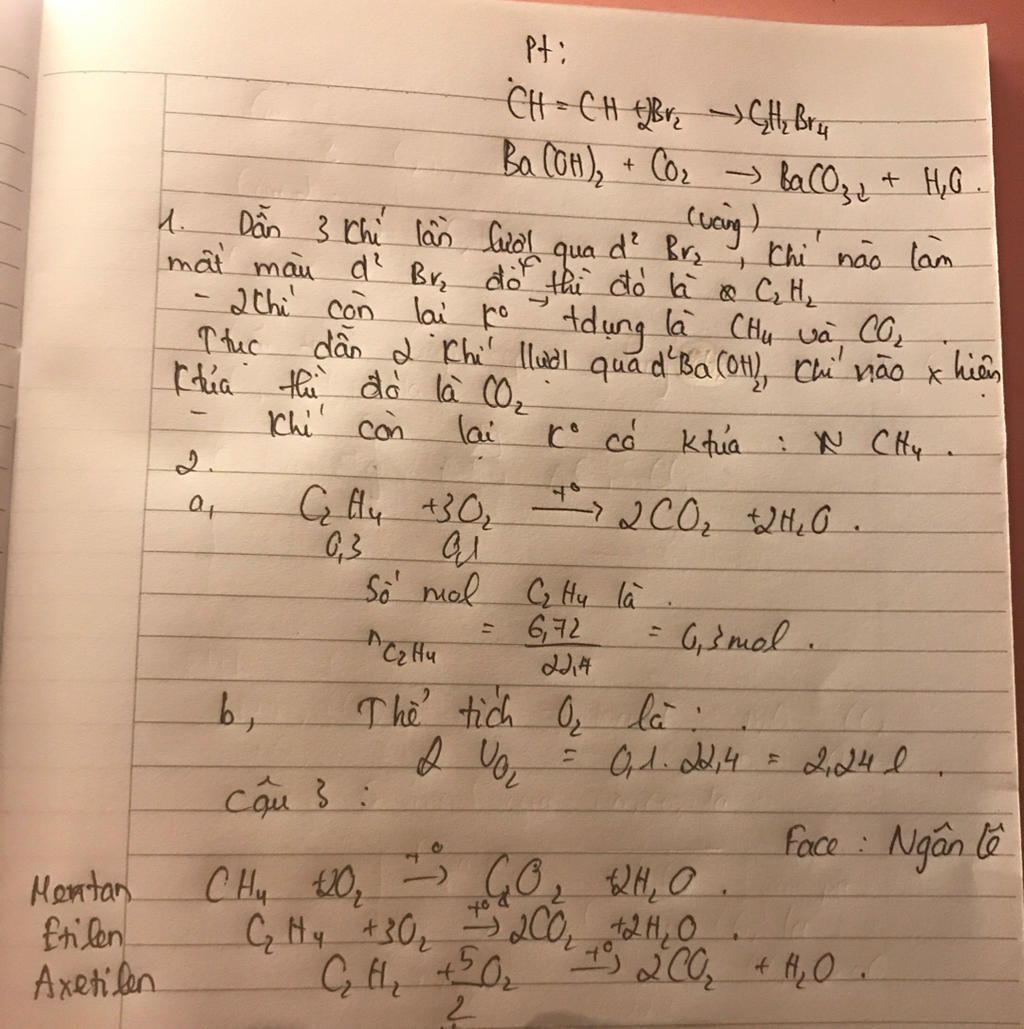 Pt:
CH = CH + 2Br2 → C2H2Br4
Ba(OH)2 + CO2 → BaCO3↓ + H2O.
1. Dẫn 3 khí lần lượt qua d² Br2 (vàng), khí nào làm
mất màu d² Br2 đó thì đó là C2H2
- 2 khí còn lại k° → tdụng là CH4 và CO2.
Ttục dẫn 2 khí llượt qua d² Ba(OH)2, khí nào x hiện
ktủa thì đó là CO2
- Khí còn lại k° có ktủa : CH4.
2.
a, C2H4 + 3O2 t°→ 2CO2 + 2H2O.
0,3 0,1
Số mol C2H4 là.
nC2H4 = 6,72/22,4 = 0,3 mol.
b, Thể tích O2 là:
VO2 = 0,1.22,4 = 2,24 l.
Câu 3 :
Face : Ngân lê
Mentan CH4 + 2O2 t°→ CO2 + 2H2O.
Etilen C2H4 + 3O2 t°→ 2CO2 + 2H2O.
Axetilen C2H2 + 5/2 O2 t°→ 2CO2 + H2O.